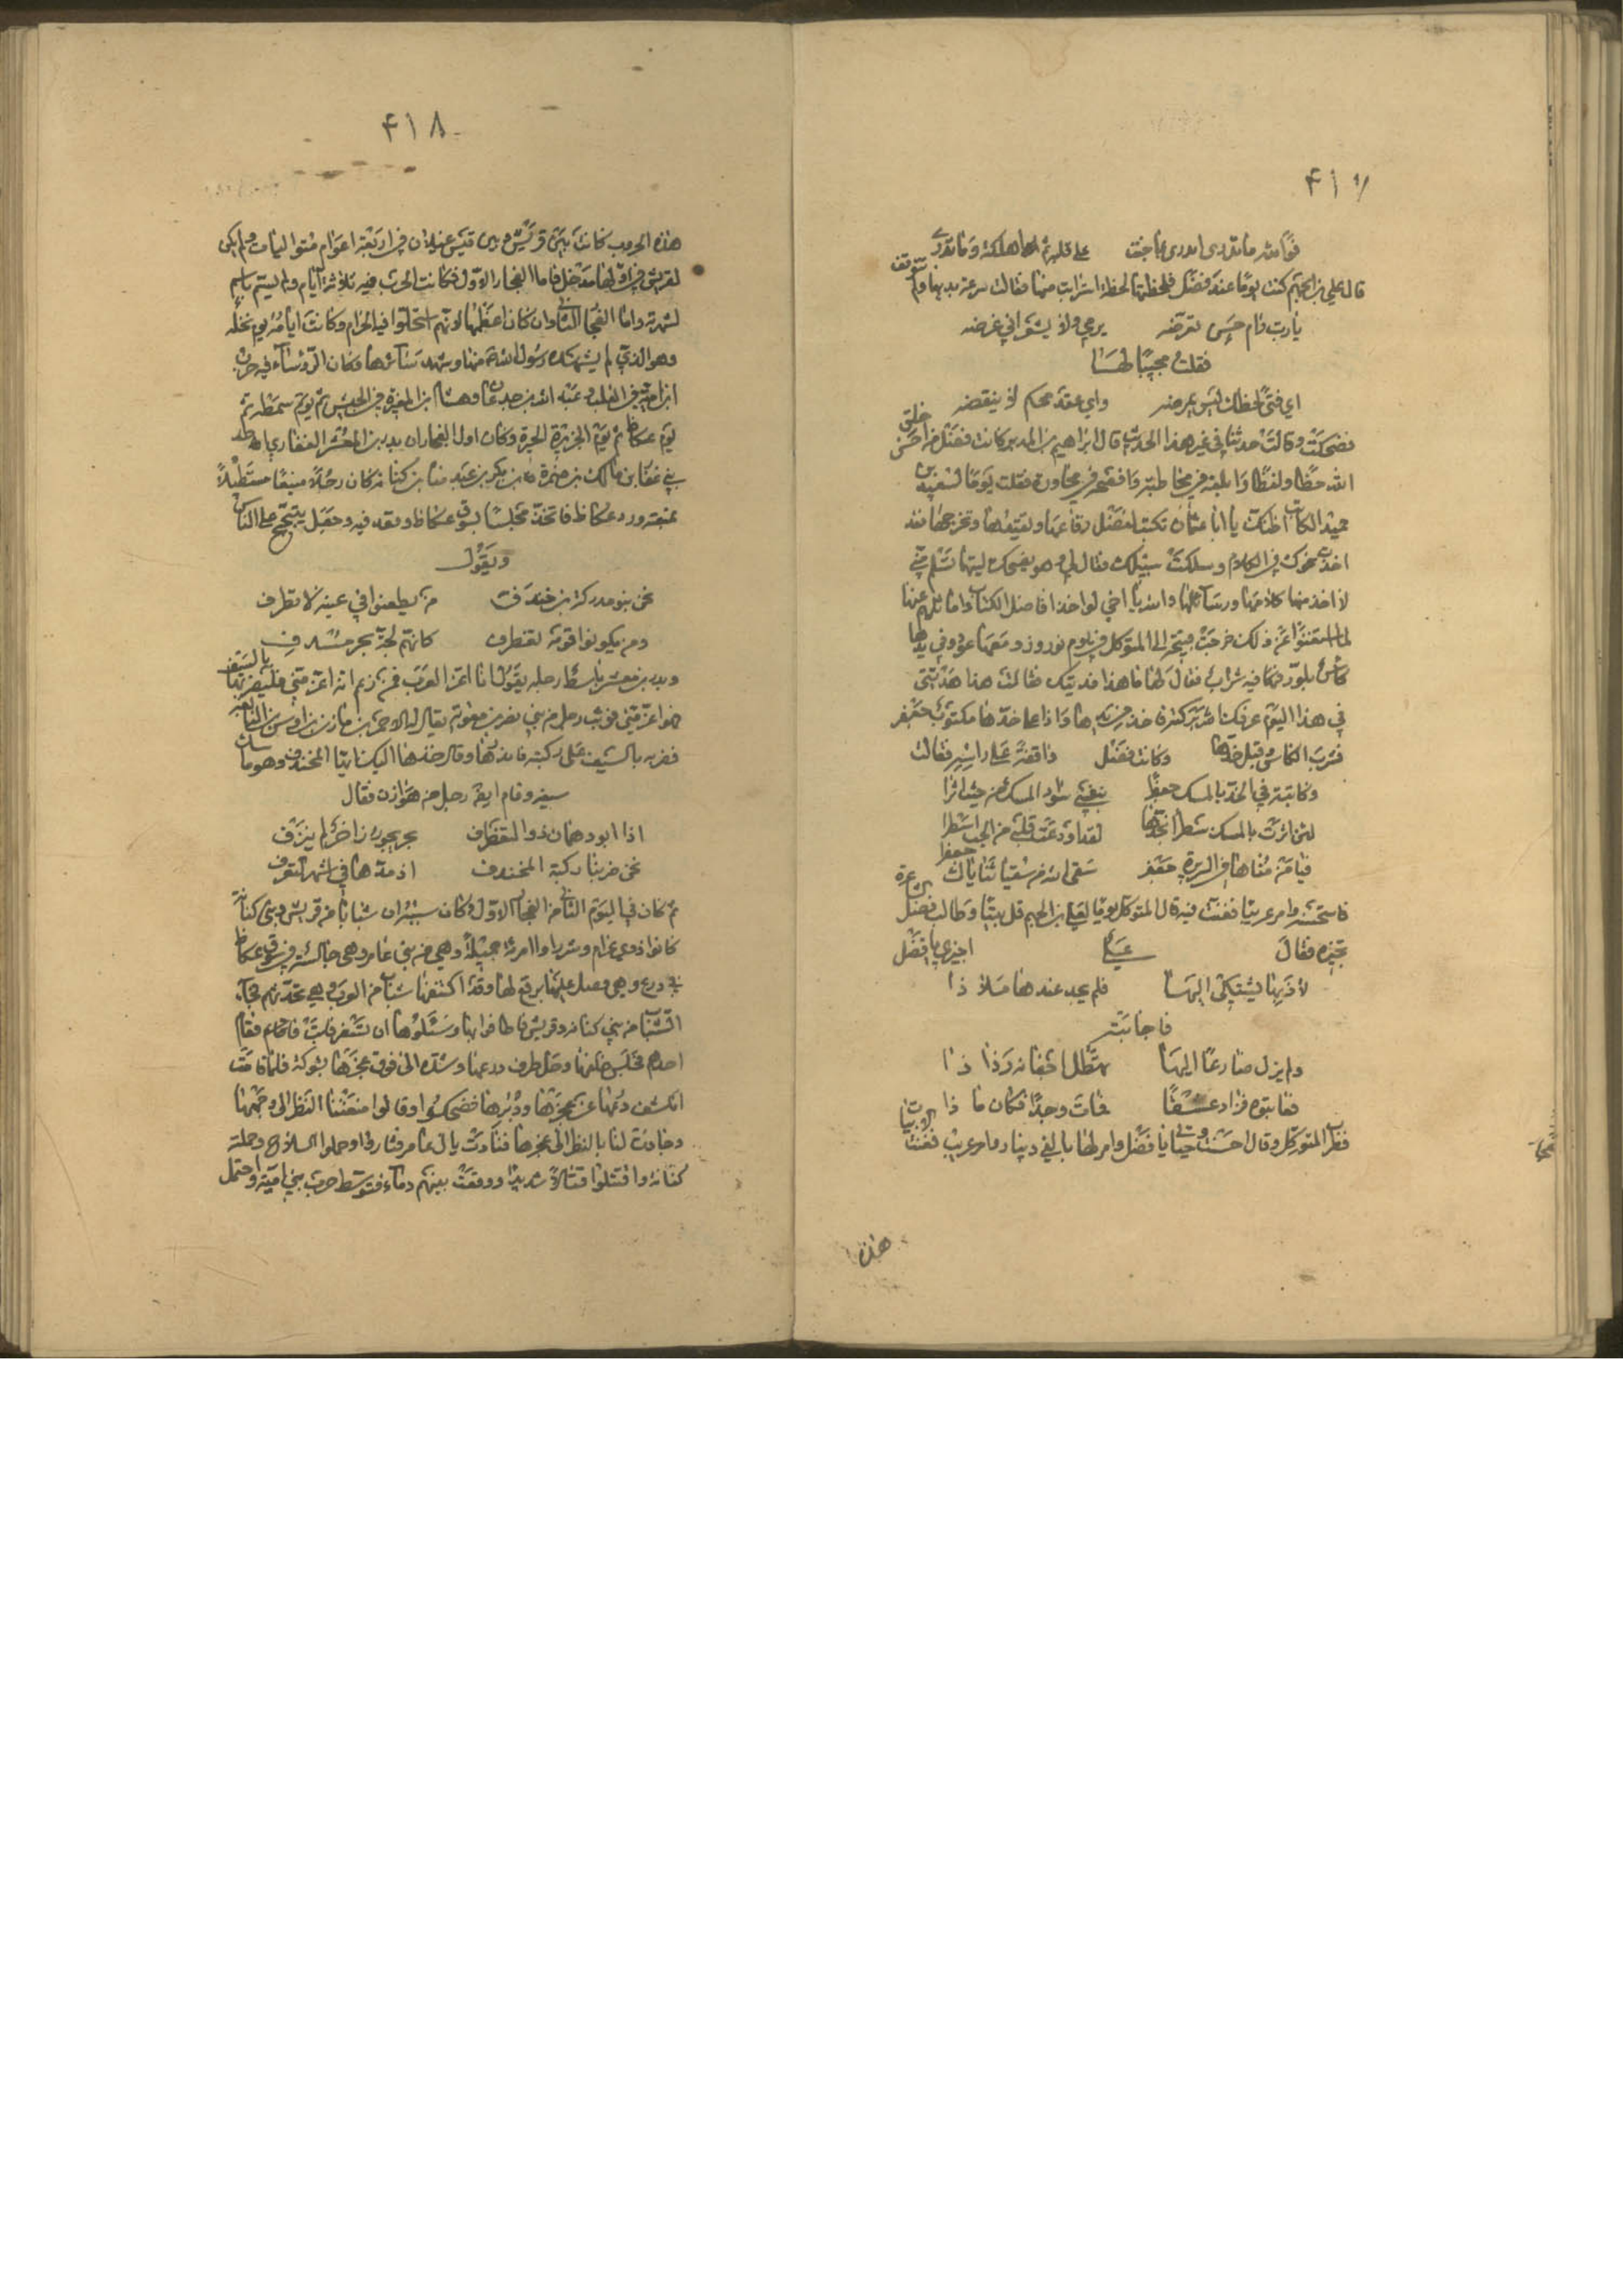 ٤١٧
فوالله ما تدري اتدري بما جنت على قلبه ام اهلكته وما تدري
قال علي بن الجهم كنت يوما عند فضل فلحظتها لحظة استرابت منها فقالت سرعة بديها ولم تتوقف
يا رب رام حسن تعرضه يرمي ولا يشعر اني غرضه
فقلت مجيبا لها
اي فتى لحظك ليس يمرضه واي عقد محكم لا ينقضه
فضحكت وقالت حدثنا في غير هذا الحديث قال ابراهيم بن المدبر كانت فضل من احسن خلق
الله حظا ولفظا وابلغه في مخاطبة وافصحه في محاورة فقلت يوما لسعيد بن
حميد الكاتب اظنك يا ابا عثمان تكتب لفضل رقاعها وتقيدها وتخرجها فقد
اخذت نحوك في الكلام وسلكت سبيلك فقال لي وهو يضحك ليتها تسلم مني
لا اخذ منها كلامها ورسائلها والله يا اخي لو اخذ افاضل الكتاب واماثلهم عنها
لما استغنوا عن ذلك خرجت قبيحة الى المتوكل في يوم نوروز ومعها عود وفي يدها
كاس بلور فيها شراب فقال لها ما هذا فديتك فقالت هذا هديتي
في هذا اليوم عرفك الله بركته فاخذه من يدها واذا على خدها مكتوب جعفر
فشرب الكاس وقبل خدها وكانت فضل واقفة على راسه فقالت
وكاتبة في الخد بالمسك جعفرا بنفسي سواد المسك من حيث اثرا
لئن اثرت بالمسك سطرا بخدها لقد اودعت قلبي من الحب اسطرا
فيا من مناها في السريرة جعفر سقى الله من سقيا ثناياك جعفرا
فاستحسنه وامر عريبا فغنت فيه قال المتوكل يوما لعلي بن الجهم قل بيتا وطالب فضل الشاعرة
تجيزه فقال علي اجيزي يا فضل
لاذ بها يشتكي اليها فلم يجد عندها ملاذا
فاجابته
ولم يزل ضارعا اليها تهطل اجفانه رذاذا
فعاتبوه فزاد عشقا فمات وجدا فكان ما ذا
فطرب المتوكل وقال احسنت وحياتي يا فضل وامر لها بالفي دينار وامر عريب فغنت الابيات
هذه
٤١٨
هذه الحروب كانت بين قريش وبين قيس عيلان في اربعة اعوام متواليات ولم يكن
لقريش في اولها مدخل فاما الفجار الاول فكانت الحرب فيه ثلاثة ايام ولم يسم باسم
لشهرته واما الفجار الثاني وان كان اعظمها لانهم استحلوا فيه الحرام وكانت ايامه يوم نخلة
وهو الذي لم يشهده رسول الله منها وشهد سائرها وكان الرؤساء فيه حرب
ابن امية في القلب وعبد الله بن جدعان وهشام ابن المغيرة في الجنبتين ثم يوم شمطة ثم
يوم عكاظ ثم يوم الجزيرة الحيرة وكان اول الفجار ان بدر بن المعشر الغفاري احد
بني غفار بن مالك بن ضمرة بن بكر بن عبد مناة بن كنانة كان رجلا منيعا مستطيلا
بمنعته ورد عكاظ فاتخذ مجلسا بسوق عكاظ وقعد فيه وجعل يتبجح على الناس
ويقول
نحن بنو مدركة بن خندف من يطعنوا في عينه لا تطرف
ومن يكونوا قومه تغطرف كانهم لجة بحر مسدف
وبدر بن معشر باسط رجله يقول انا اعز العرب فمن زعم انه اعز مني فليضربها بالسيف
فهو اعز مني فوثب رجل من بني نصر بن معاوية يقال له الاحمر بن مازن بن اوس بن النابغة
فضربه بالسيف على ركبته فاندرها وقال خذها اليك ايها المخندف وهو ماسك
سيفه وقام ايضا رجل من هوازن فقال
اذا ابو دهمان ذو التغطرف بحر بحور زاخر لم ينزف
نحن ضربنا ركبة المخندف اذ مدها في اشهر المعرف
ثم كان في اليوم الثاني من الفجار الاول وكان سببه ان شبابا من قريش وبني كنانة
كانوا ذوي غرام وشرب راوا امرة جميلة وهي من بني عامر وهي جالسة في سوق عكاظ
في درع وهي فصل عليها برقع لها وقد اكتنفها شباب من العرب وهي تحدثهم فجاء
الشباب من بني كنانة وقريش فاطافوا بها وسئلوها ان تسفر فابت فقام
احدهم فجلس خلفها وحل طرف درعها وشده الى فوق عجزها بشوكة فلما قامت
انكشف درعها عن عجزها ودبرها فضحكوا وقالوا منعتنا النظر الى وجهها
وجادت لنا بالنظر الى عجزها فنادت يا ال عامر فثاروا وحملوا السلاح وحملته
كنانة واقتتلوا قتالا شديدا ووقعت بينهم دماء فتوسط حرب بني امية واحتمل